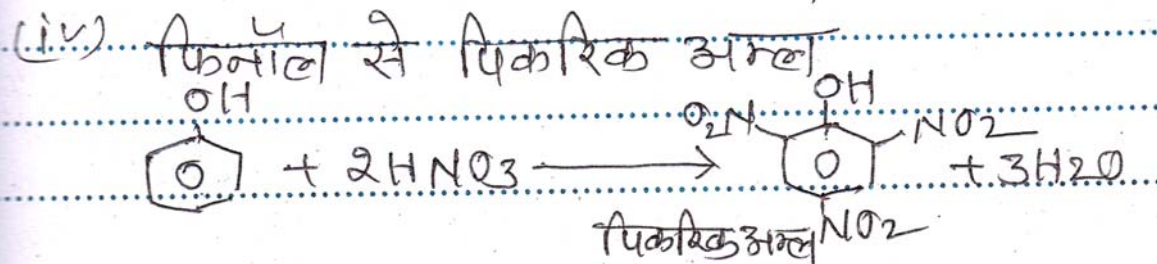 (iv) फिनॉल से पिकरिक अम्ल
OH OH
O₂N NO2
+ 2HNO3 → + 3H2O
पिकरिक अम्ल NO2